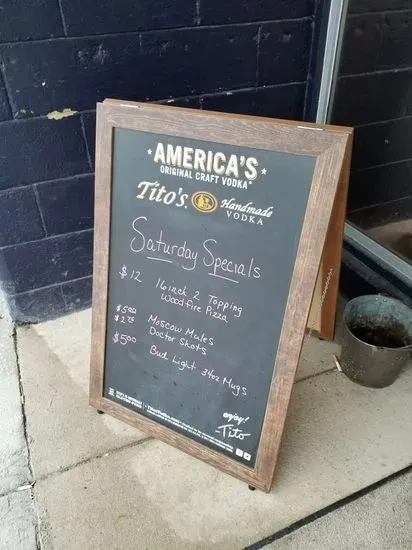 AMERICA'S
ORIGINAL CRAFT VODKA
Tito's Handmade
VODKA
Saturday Specials
$12 16 inch 2 Topping
Woodfire Pizza
$5.00 Moscow Mules
$2.75 Doctor Shots
$5.00 Bud Light 34oz Mugs
enjoy!
-Tito